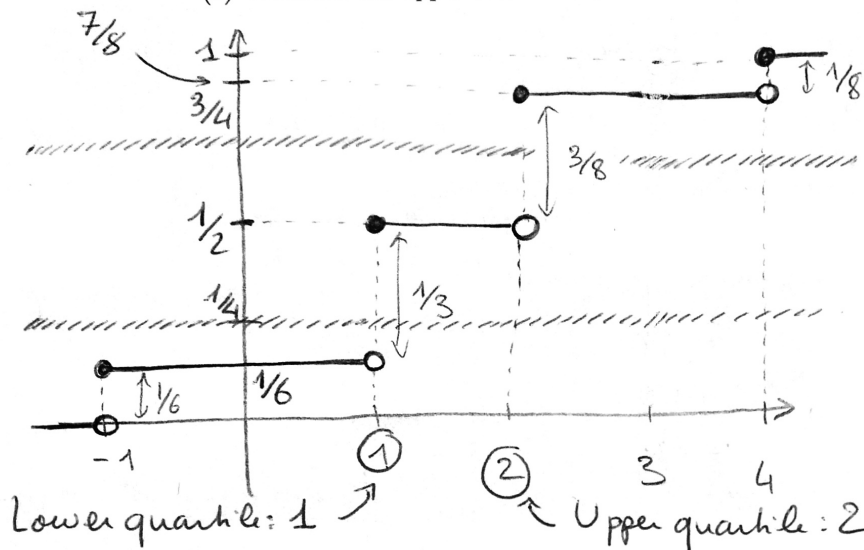 7/8
1
3/4
1/8
3/8
1/2
1/4
1/3
1/6
1/6
-1
1
2
3
4
Lower quartile: 1
Upper quartile: 2